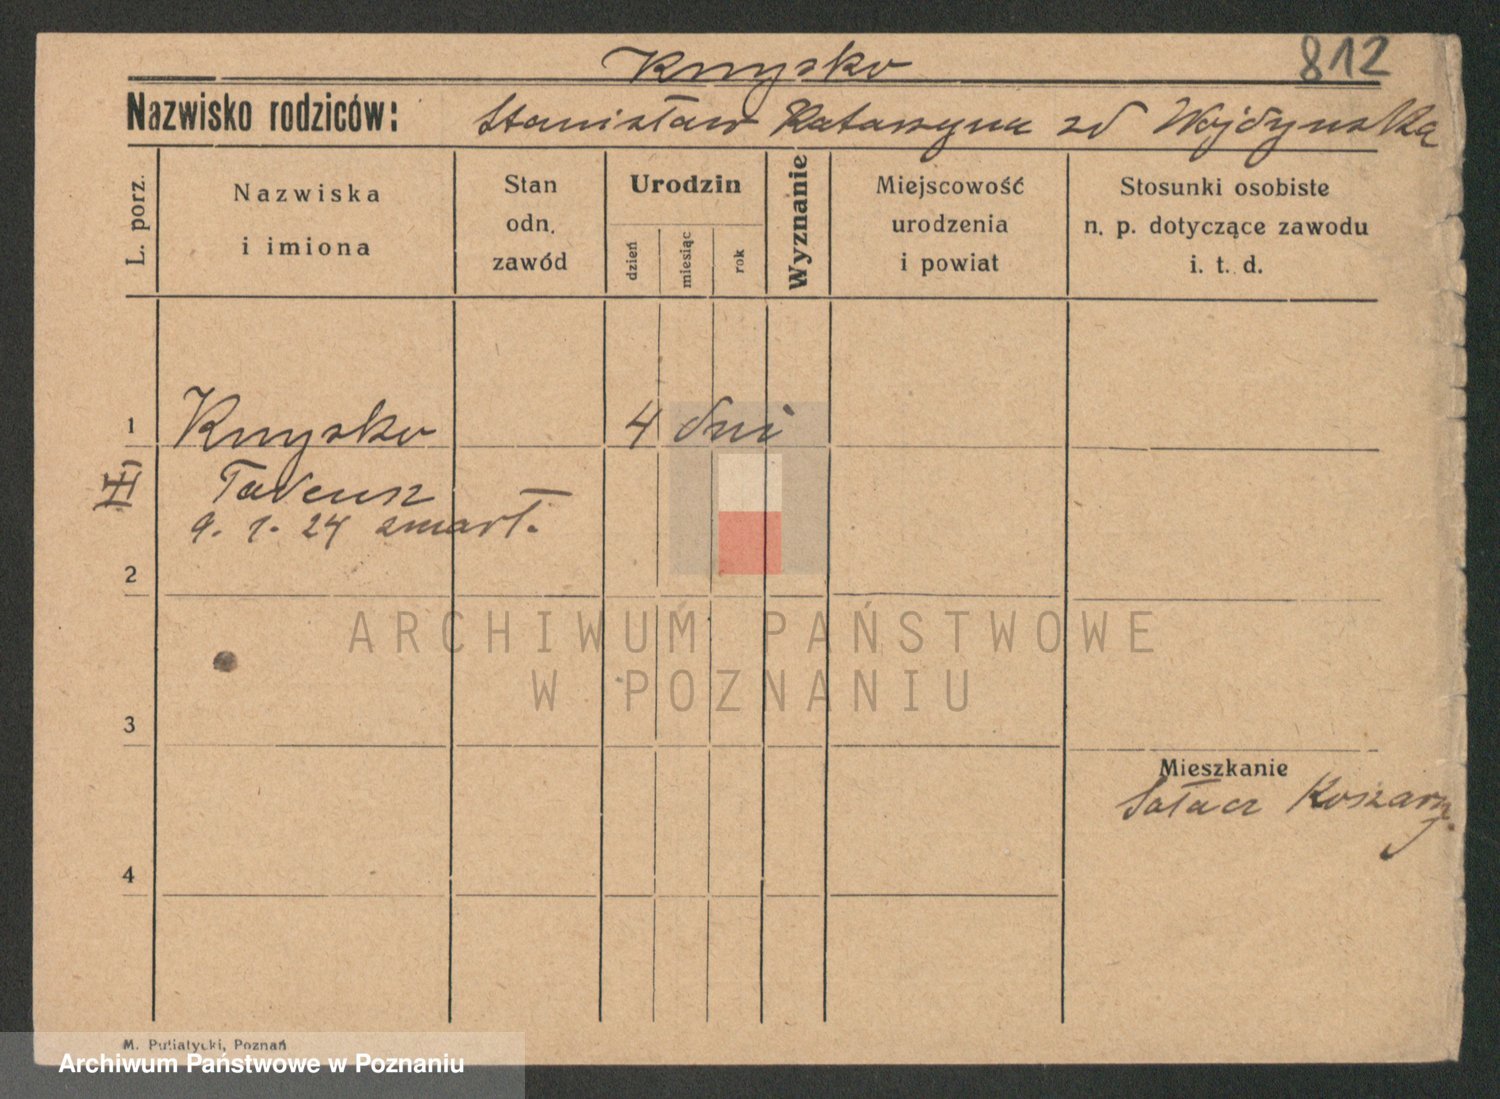 Knysko 812
Nazwisko rodziców: Stanisław Katarzyna zd Wojdynska
L. porz.
Nazwiska
i imiona
Stan
odn.
zawód
Urodzin
dzień
miesiąc
rok
Wyznanie
Miejscowość
urodzenia
i powiat
Stosunki osobiste
n. p. dotyczące zawodu
i. t. d.
1 Knysko 4 dni
Tadeusz
9. 1. 24 zmarł.
2
ARCHIWUM PAŃSTWOWE
W POZNANIU
3
Mieszkanie
Sołacz Koszary.
4
M. Putiatycki, Poznań
Archiwum Państwowe w Poznaniu